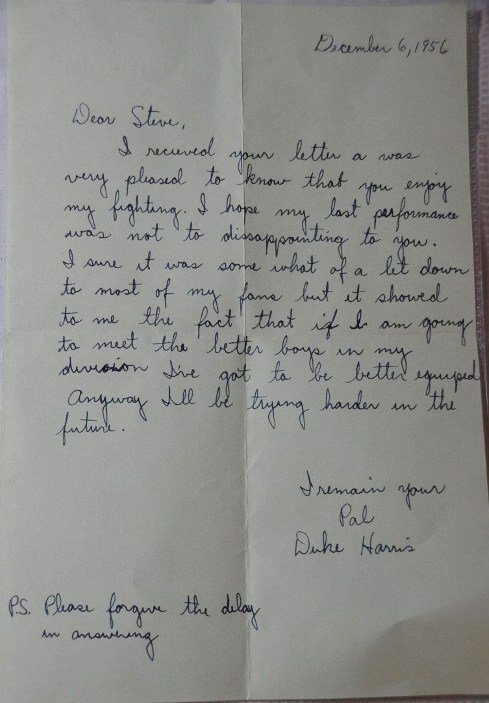 December 6, 1956
Dear Steve,
I recieved your letter a was
very pleased to know that you enjoy
my fighting. I hope my last performance
was not to dissappointing to you.
I sure it was some what of a let down
to most of my fans but it showed
to me the fact that if I am going
to meet the better boys in my
division I've got to be better equiped
Anyway I'll be trying harder in the
future.
I remain your
Pal
Duke Harris
P.S. Please forgive the delay
in answering